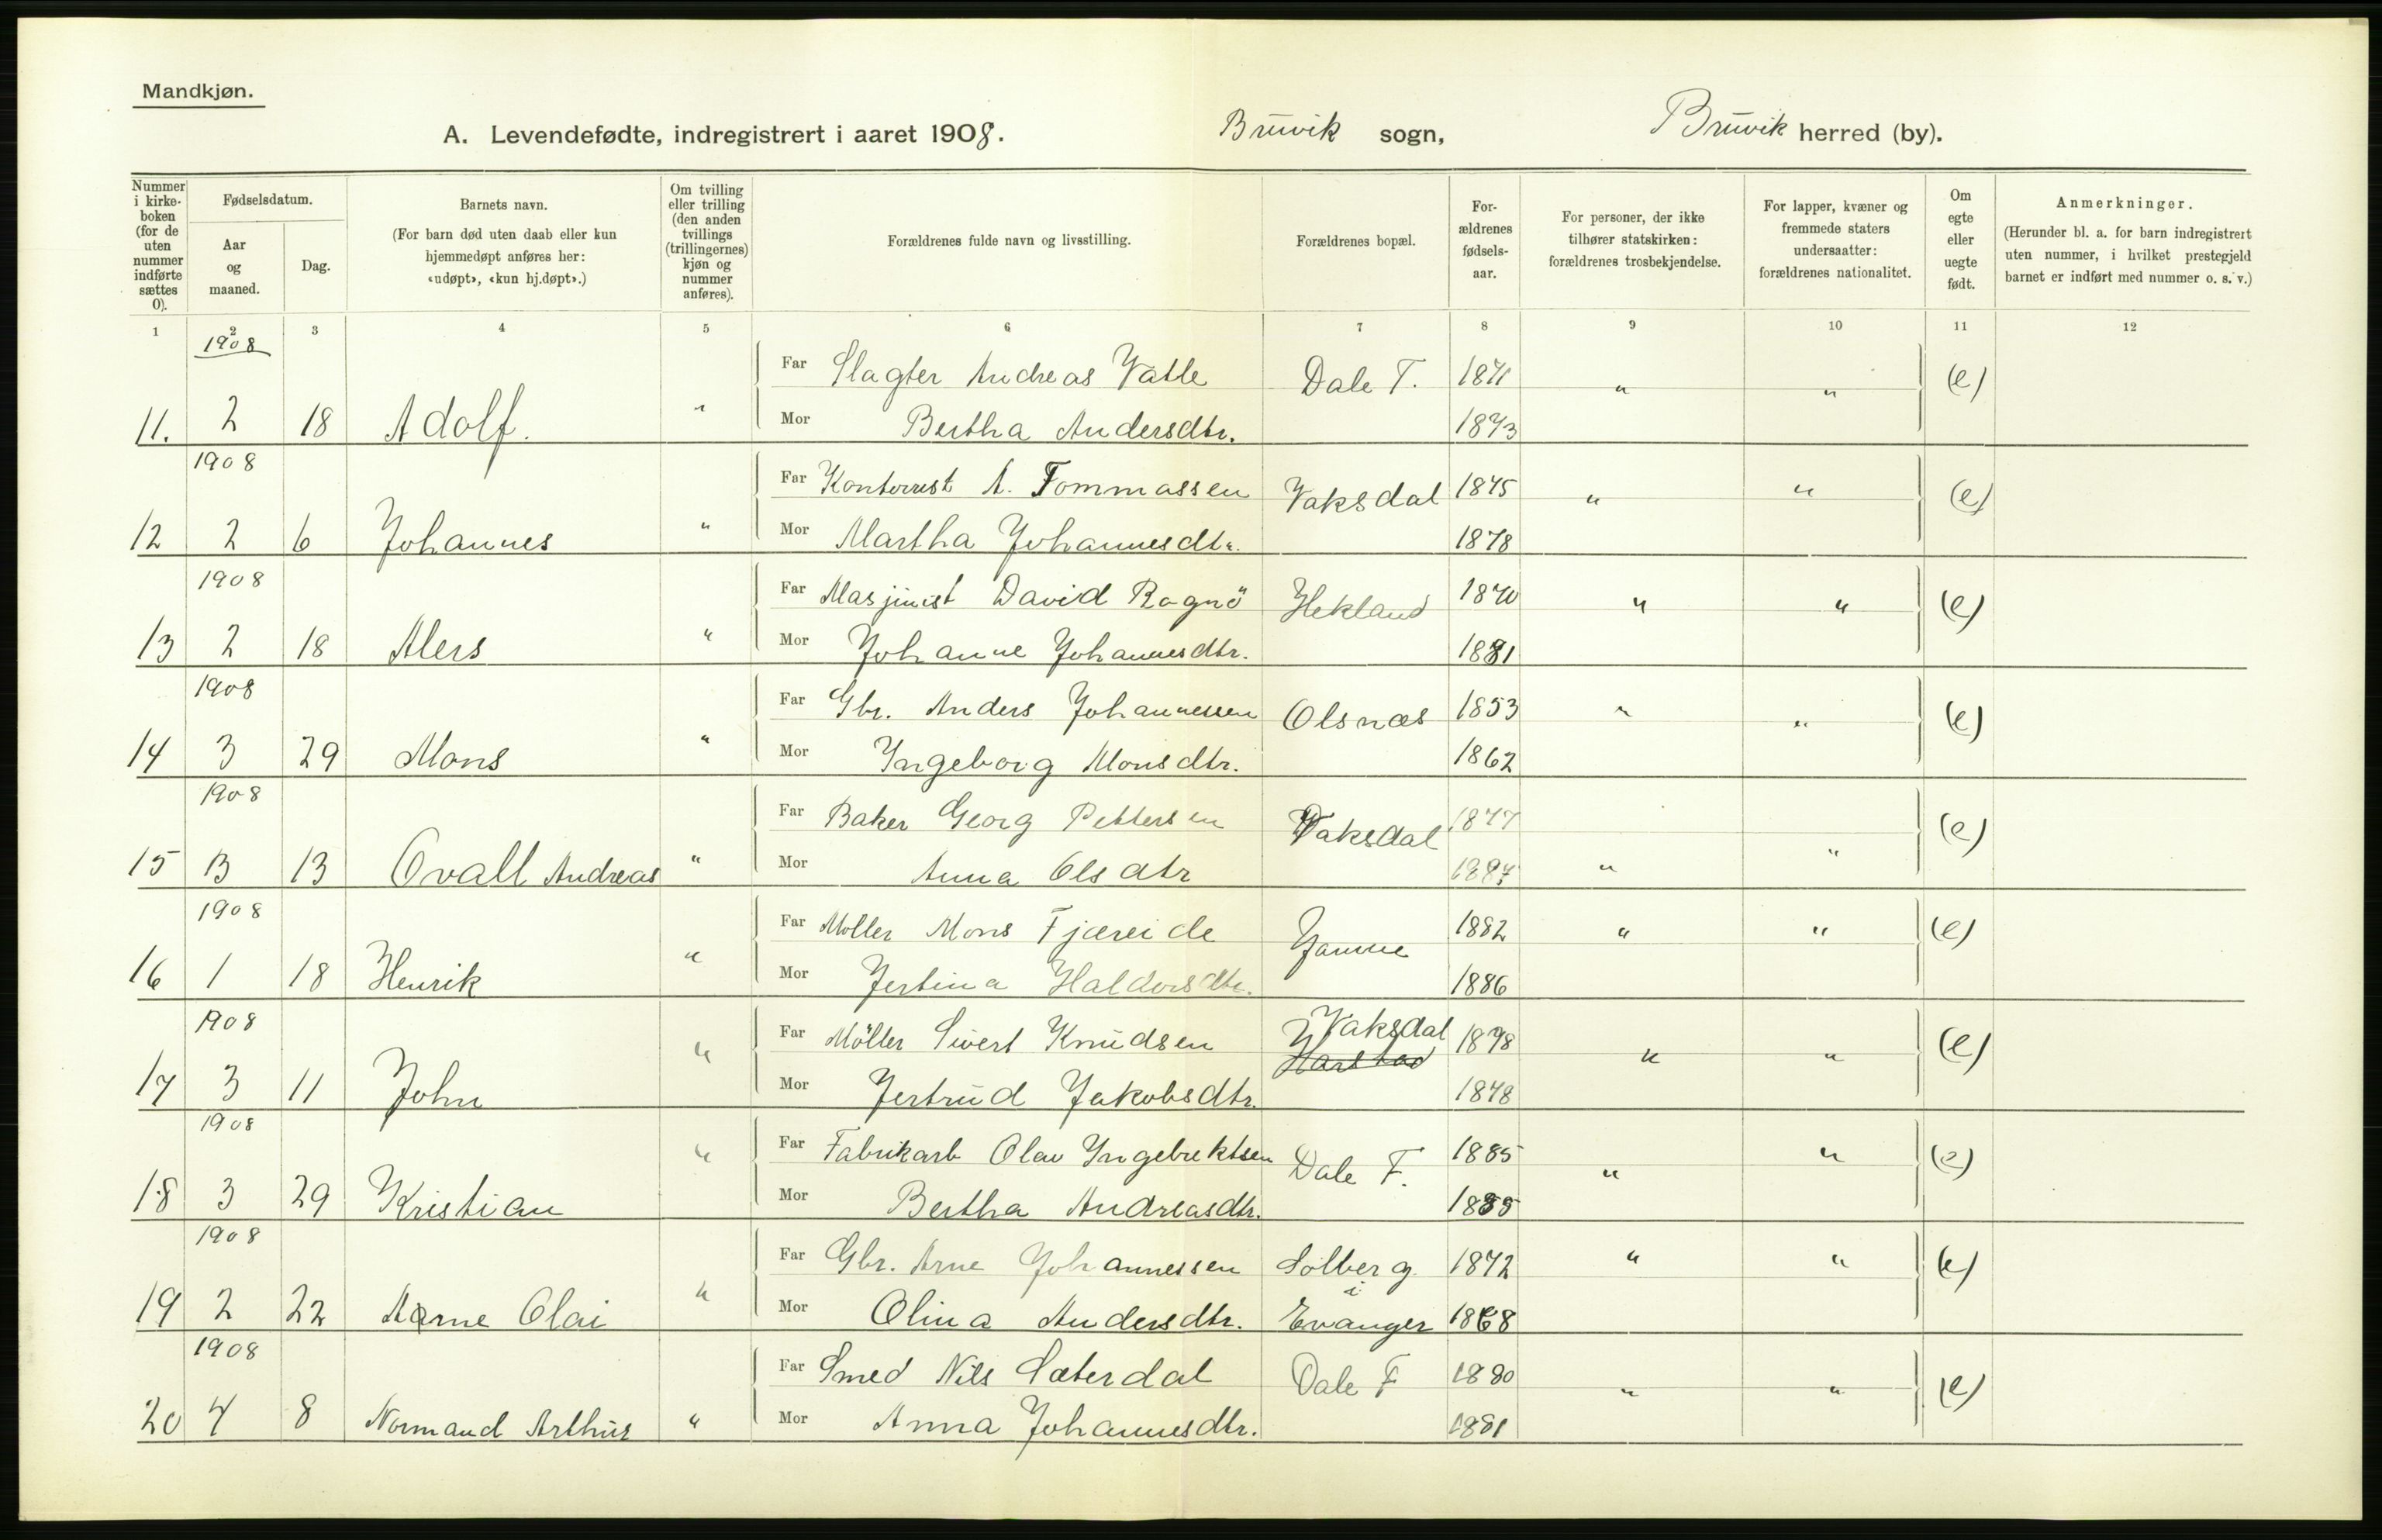 Mandkjøn.
A. Levendefødte, indregistrert i aaret 1908. Bruvik sogn, Bruvik herred (by).
Nummer i kirkeboken (for de uten nummer indførte sættes 0).
Fødselsdatum.
Aar og maaned.
Dag.
Barnets navn.
(For barn død uten daab eller kun hjemmedøpt anføres her: «udøpt», «kun hj.døpt».)
Om tvilling eller trilling (den anden tvillings (trillingernes) kjøn og nummer anføres).
Forældrenes fulde navn og livsstilling.
Forældrenes bopæl.
Forældrenes fødselsaar.
For personer, der ikke tilhører statskirken: forældrenes trosbekjendelse.
For lapper, kvæner og fremmede staters undersaatter: forældrenes nationalitet.
Om egte eller uegte født.
Anmerkninger.
(Herunder bl. a. for barn indregistrert uten nummer, i hvilket prestegjeld barnet er indført med nummer o. s. v.)
1 2 3 4 5 6 7 8 9 10 11 12
1908
Far Slagter Andreas Vatle Dale T. 1871 " " (e)
11. 2 18 Adolf. " Mor Bertha Andersdtr. 1873
1908
Far Kontorist A. Tommassen Vaksdal 1875 " " (e)
12 2 6 Johannes " Mor Martha Johannesdtr. 1878
1908
Far Masjinist David Ragnö Hekland 1870 " " (e)
13 2 18 Alers " Mor Johanne Johannesdtr. 1881
1908
Far Gbr. Anders Johannessen Olsnæs 1853 " " (e)
14 3 29 Mons " Mor Ingeborg Monsdtr. 1862
1908
Far Baker Georg Pettersen Vaksdal 1877 (e)
15 3 13 Ovall Andreas " Mor Anna Olsdtr 1887 " "
1908
Far Møller Mons Fjæreide Jamne 1882 " " (e)
16 1 18 Henrik " Mor Jertina Haldorsdtr. 1886
1908
Far Möller Sivert Knudsen Vaksdal 1878 " " (e)
17 3 11 John " Mor Jertrud Jakobsdtr. 1878
1908
Far Fabrikarb Olav Ingebrektsen Dale F. 1885 " " (e)
18 3 29 Kristian " Mor Bertha Andreasdtr. 1885
1908
Far Gbr. Arne Johannessen Solberg i 1872 " " (e)
19 2 22 Arne Olai " Mor Olina Andersdtr. Evanger 1868
1908
Far Smed Nils Sæterdal Dale F 1880 " " (e)
20 4 8 Normand Arthur " Mor Anna Johannesdtr. 1881